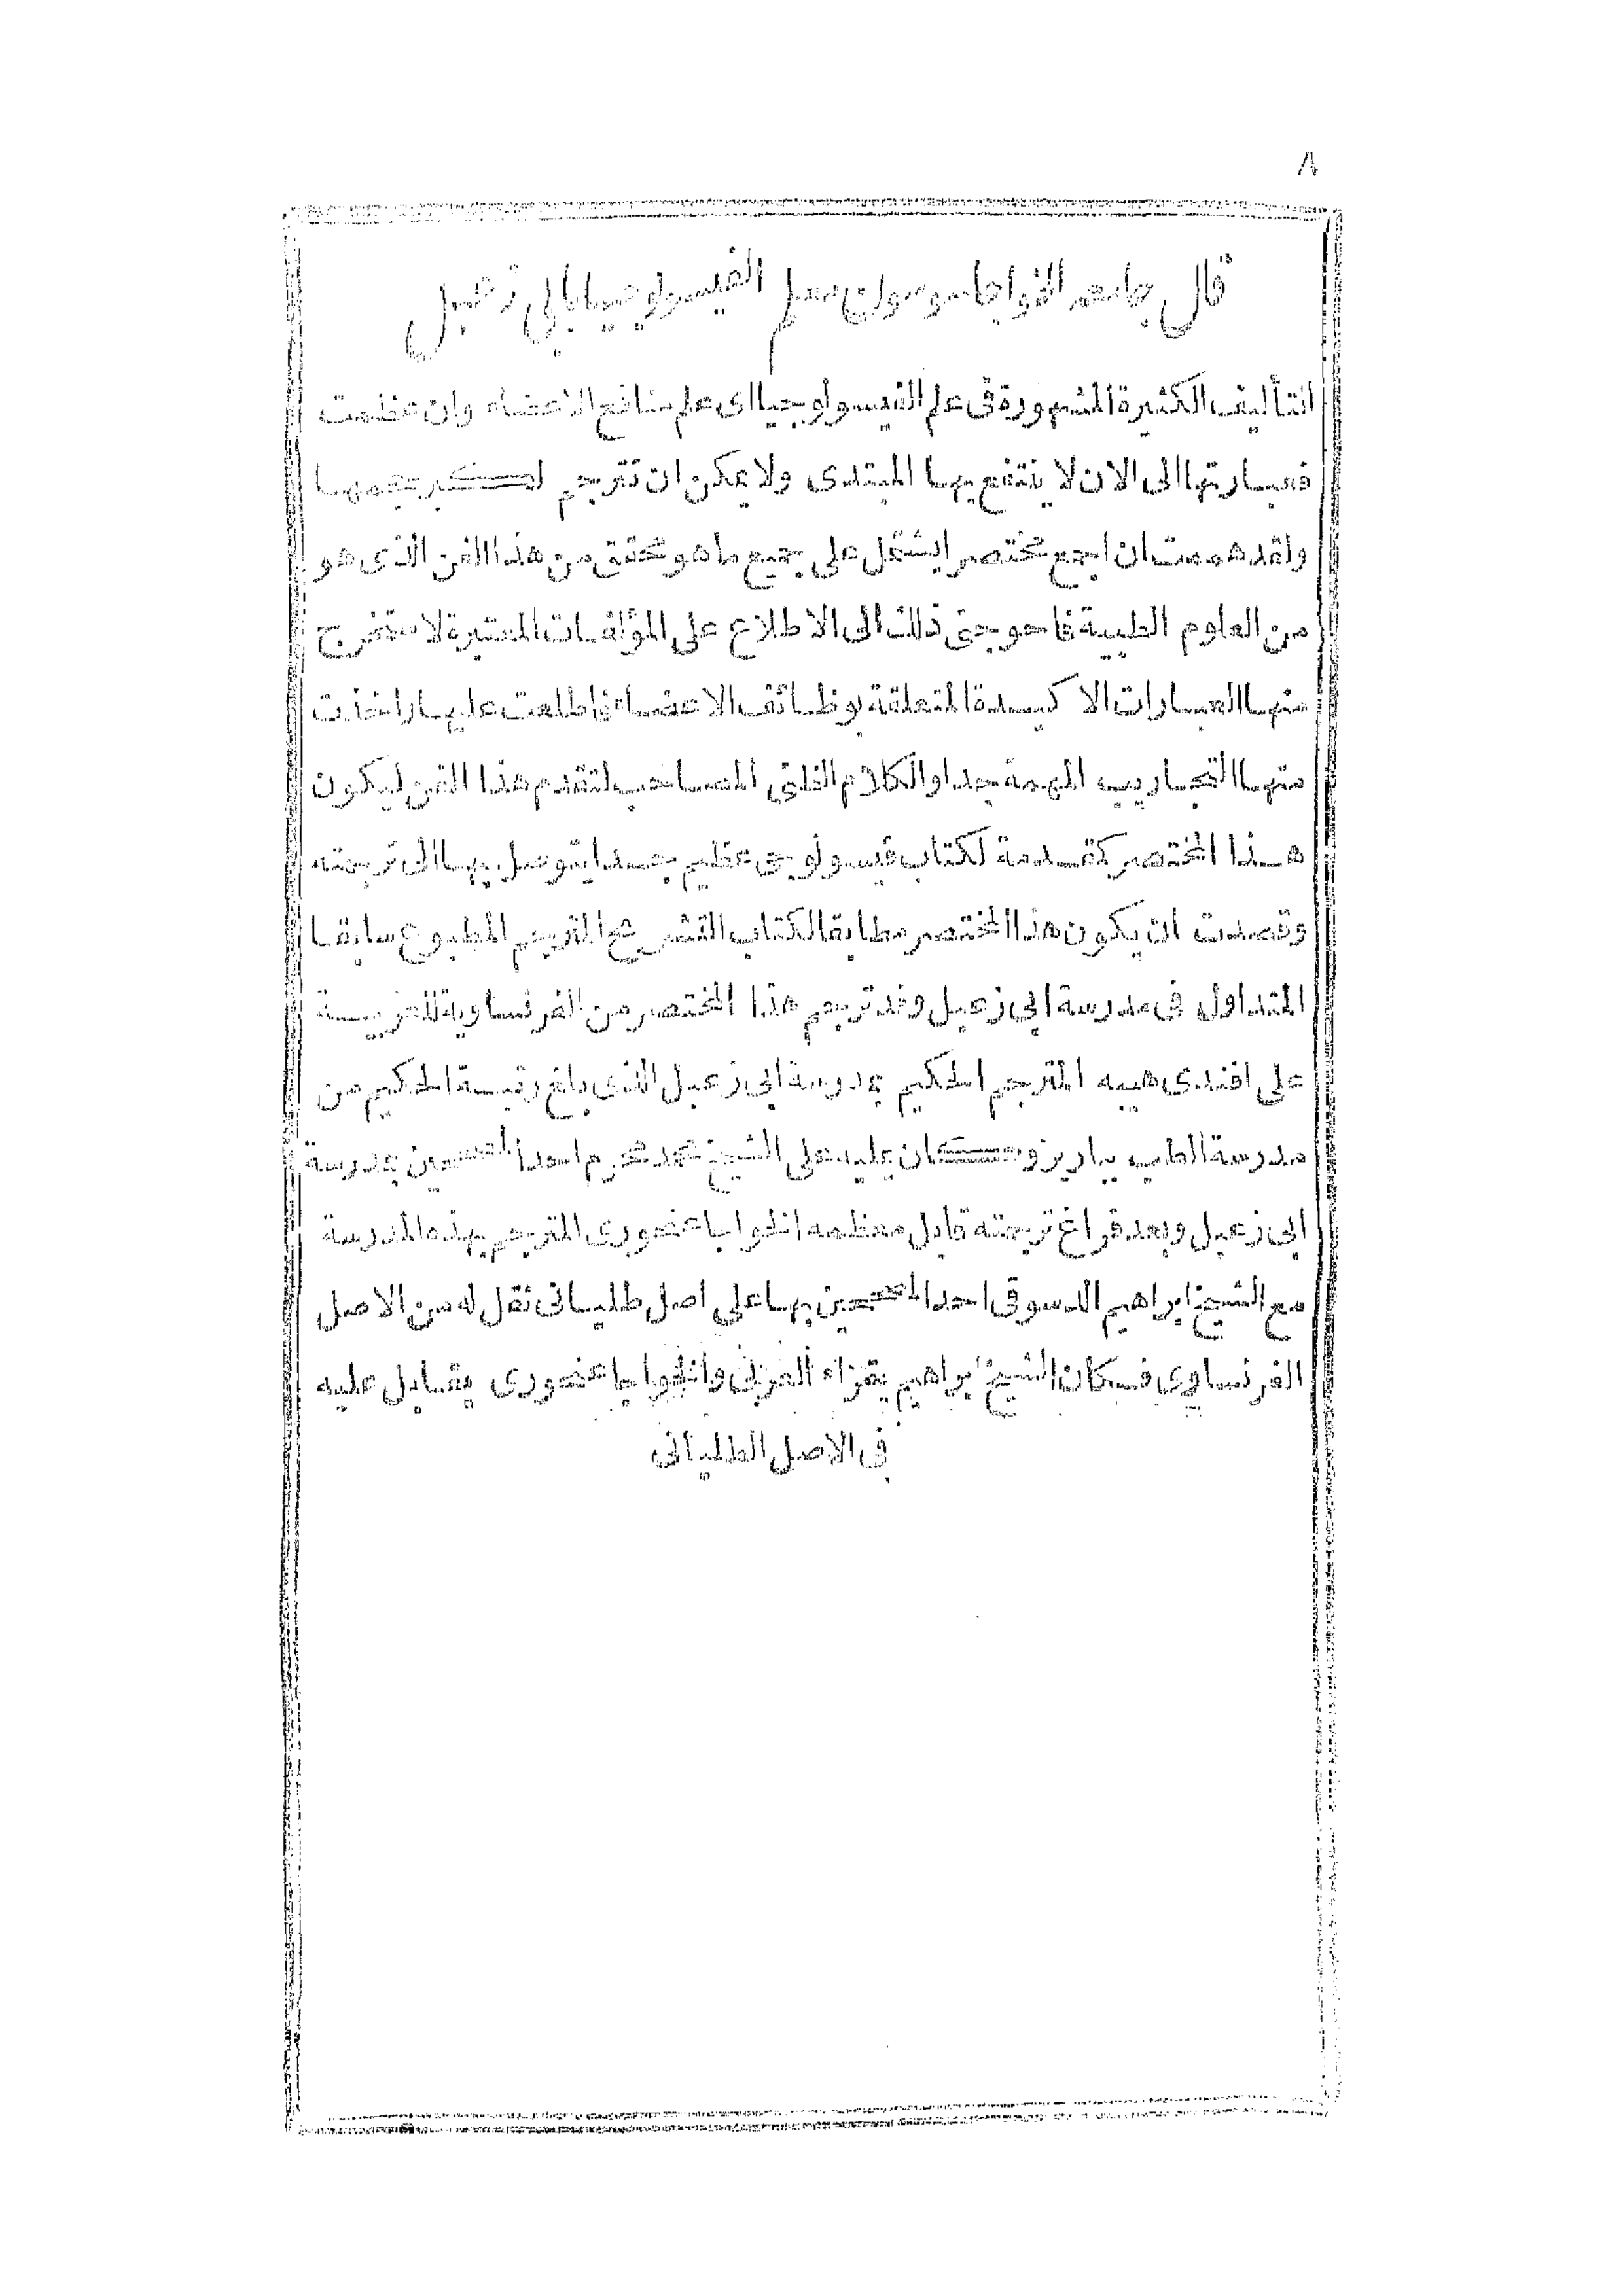 ٨
قال جامعه الخواجا سوسون معلم الفيسولوجيا بابى زعبل
التأليف الكثيرة المشهورة فى علم الفيسولوجيا اى علم منافع الاعضاء وان عظمت
فعبارتها الى الان لا ينتفع بها المبتدى ولا يمكن ان تترجم لكبر حجمها
ولقد هممت ان اجمع مختصرا يشتمل على جميع ما هو محقق من هذا الفن الذى هو
من العلوم الطبية فاحوجنى ذلك الى الاطلاع على المؤلفات المعتبرة لاستخرج
منها العبارات الاكيدة المتعلقة بوظائف الاعضاء فاطلعت عليها واخذت
منها التجاريب المهمة جدا والكلام الفلسفى المصاحب لتقدم هذا الفن ليكون
هذا المختصر كمقدمة لكتاب فيسولوجى عظيم جدا يتوصل بها الى ترجمته
وقصدت ان يكون هذا المختصر مطابقا لكتاب التشريح المترجم المطبوع سابقا
المتداول فى مدرسة ابى زعبل وقد ترجم هذا المختصر من الفرنساوية للعربية
على افندى هيبه المترجم الحكيم بمدرسة ابى زعبل الذى بلغ رتبة الحكيم من
مدرسة الطب بباريز وكان عليه على الشيخ محمد محرم احد المصححين بمدرسة
ابى زعبل وبعد فراغ ترجمته قابل معظمه الخواجا عنحورى المترجم بهذه المدرسة
مع الشيخ ابراهيم الدسوقى احد المصححين بها على اصل طليانى نقل له من الاصل
الفرنساوى فكان الشيخ ابراهيم يقراء العربى والخواجا عنحورى يقابل عليه
فى الاصل الطليانى